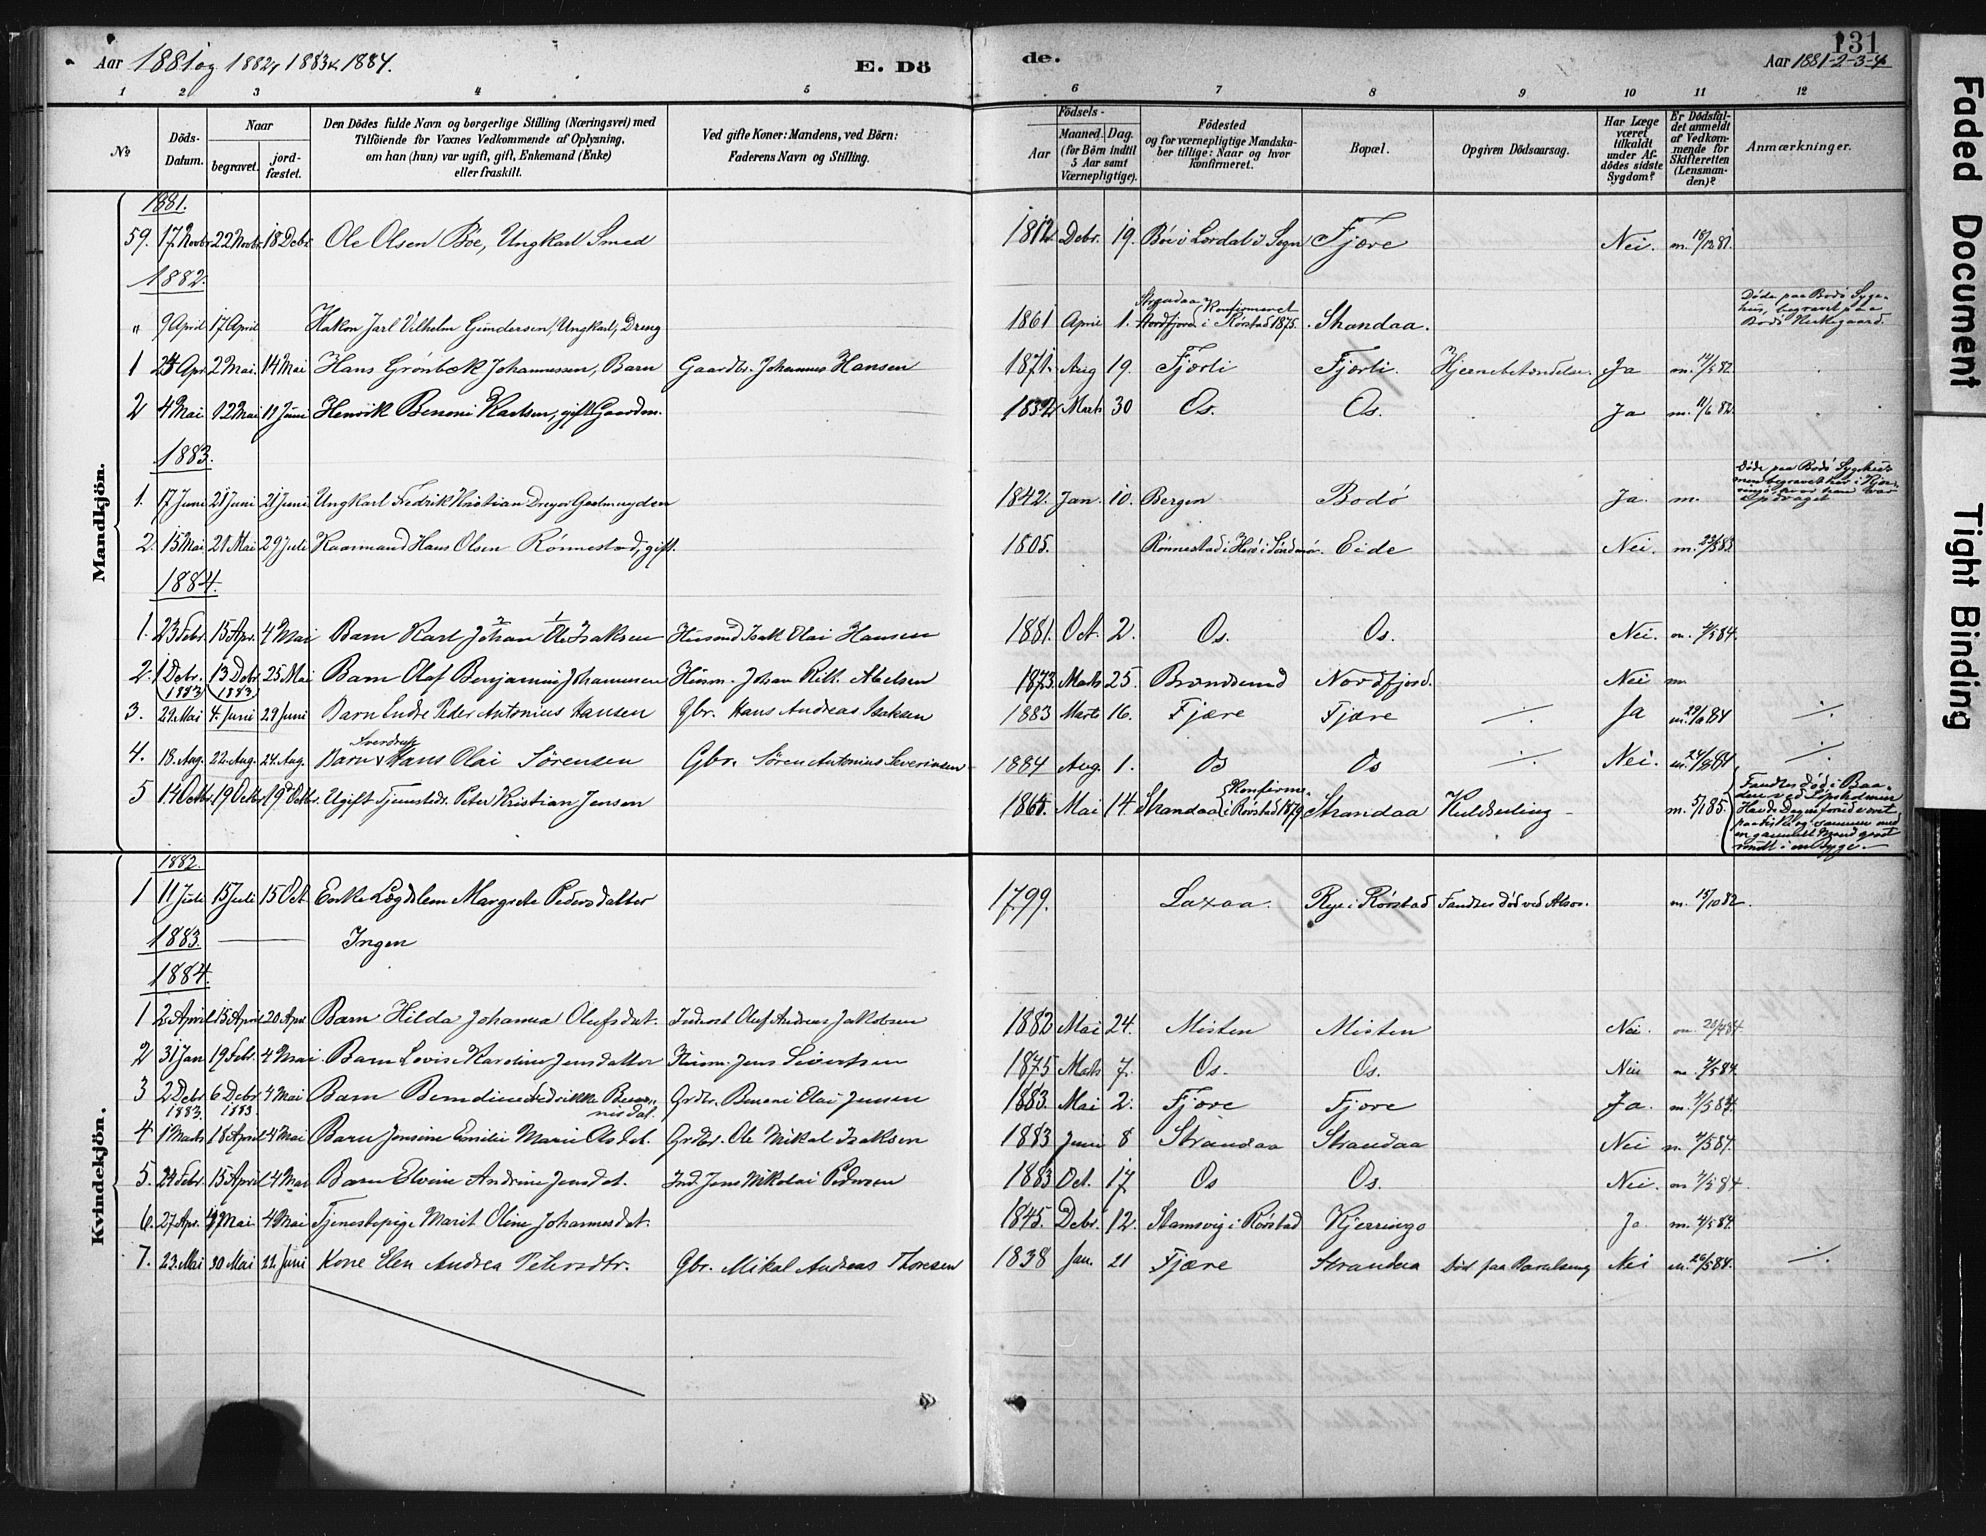 Aar 1881 og 1882, 1883 & 1884.
E. Dö
de.
131
Aar 1881-2-3-4
1 2 3 4 5 6 7 8 9 10 11 12
№
Döds-Datum.
Naar
begravet.
jord-fæstet.
Den Dödes fulde Navn og borgerlige Stilling (Næringsvei) med
Tilföiende for Voxnes Vedkommende af Oplysning,
om han (hun) var ugift, gift, Enkemand (Enke)
eller fraskilt.
Ved gifte Koner: Mandens, ved Börn:
Faderens Navn og Stilling.
Födsels-
Aar
Maaned. Dag.
(for Börn indtil
5 Aar samt
Værnepligtige).
Födested
og for værnepligtige Mandska-
ber tillige: Naar og hvor
konfirmeret.
Bopæl.
Opgiven Dödsaarsag.
Har Læge
været
tilkaldt
under Af-
dödes sidste
Sygdom?
Er Dödsfal-
det anmeldt
af Vedkom-
mende for
Skifteretten
(Lensman-
den)?
Anmærkninger.
Mandkjön.
1881.
59. 17 Novbr. 22 Novbr. 18 Debr. Ole Olsen Böe, Ungkarl Smed 1812 Debr. 19. Böe i Lærdal i Sogn Fjære Nei. m. 18/12 81.
1882.
" 9 April 17 April Hakon Jarl Vilhelm Gundersen, Ungkarl, Dreng 1861 April 1. Strandaa Nordfjord Konfirmeret i Rörstad 1875. Strandaa. Döde paa Bodö Syge-
hus, begravet paa
Bodö Kirkegaard.
1 24 Apr. 2 Mai. 14 Mai Hans Grönbæk Johannessen, Barn Gaardbr. Johannes Hansen 1871. Aug 19. Fjærli Fjærli. Hjernebetændelse. Ja m. 14/5 82.
2 4 Mai 12 Mai 11 Juni Henrik Benoni Karlsen, gift Gaardm. 1832 Marts 30 Os. Os. Ja m. 11/6 82.
1883.
1. 17 Juni 21 Juni 21 Juni Ungkarl Fredrik Kristian Dreyer Geelmuyden 1842. Jan. 10. Bergen Bodö Ja. m. Döde paa Bodö Sygehus
men begravet her i Kjær-
ringö hvor han var
opdraget
2. 15 Mai 21 Mai 29 Juli Kaarmand Hans Olsen Rönnestad, gift. 1805. Rönnestad i Herö i Söndmör. Eide Nei. m. 22/5 83.
1884.
1. 23 Febr. 15 Apr. 4 Mai Barn Karl Johan Ole Isaksen Husmd Isak Elai Hansen 1881. Oct. 2. Os. Os. Nei. m. 4/5 84.
2. 1 Debr. 1883 13 Debr 1883 25 Mai Barn Olaf Benjamin Johannesen Husm. Johan Abelsen 1873. Marts 25. Brændsund Nordfjord. Nei m
3. 29. Mai 4. Juni 29 Juni Barn Endre Peder Antonius Hansen Gbr. Hans Andreas Isaksen 1883 Marts 16. Fjære Fjære ./. Ja m. 29/6 84 ./.
4. 18. Aug. 22. Aug. 24. Aug. Barn Sverdrup Hans Olai Sörensen Gbr. Sören Antonius Severinsen 1884 Aug. 1. Os Os ./. Nei. m. 24/8 84 ./.
5 14 Octbr. 19 Octbr. 19 Octbr. Ugift Tjenestedr. Peter Kristian Jensen 1865. Mai 14. Strandaa Konfirm. i Rörstad 1879. Strandaa Kuldseiling - m. 5/1 85. Fandtes död i Baa-
den ved
Havde Dagen forud været
paa Fiske og sammen med
en gammel Mand
rundt i en Byge. -
Kvindekjön.
1882.
1 11 Juli 15 Juli 15 Oct. Enke Lægdslem Margrete Pedersdatter 1799. Laxaa. Rye i Rörstad Fandtes död ved m. 15/10 82.
1883. Ingen
1884.
1 2 April 15 April 20 Apr. Barn Hilda Johanna Olufsdat. Inderst Oluf Andreas Jakobsen 1882 Mai 24. Misten Misten Nei. m. 20/4 84.
2 31 Jan 19 Febr. 4 Mai. Barn Lovise Karoline Jensdatter Husm. Jens Sivertsen 1875 Marts 7. Os. Os. Nei m. 4/5 84.
3 2 Debr 1883. 6 Debr 1883. 4 Mai Barn Berndine Fredrikke Beno-
nisdat. Grdbr. Benoni Elai Jensen 1883. Mai 2. Fjære Fjære Ja. m. 4/5 84.
4 1 Marts 18 April 4 Mai Barn Jensine Emilie Marie Olsdat. Grdbr. Ole Mikal Isaksen 1883 Juni 8 Strandaa Strandaa Nei m. 4/5 84.
5. 24 Febr. 15 April 4 Mai Barn Elvine Andrine Jensdat. Ind. Jens Nikolai Pedersen 1883 Oct. 17 Os Os. Nei. m 4/5 84.
6. 27 Apr. Mai 4 Mai Tjenestepige Marit Oline Johannesdat. 1845. Debr. 12. Stamsvig i Rörstad Kjerringö Ja m. 4/5 84.
7. 23. Mai 30 Mai 22. Juni Kone Elen Andrea Petersdtr. Gbr. Mikal Andreas Thoresen 1838 Jan. 21 Fjære Strandaa Död paa Barselseng Nei m. 26/5 84. ./.
Faded Document
Tight Binding